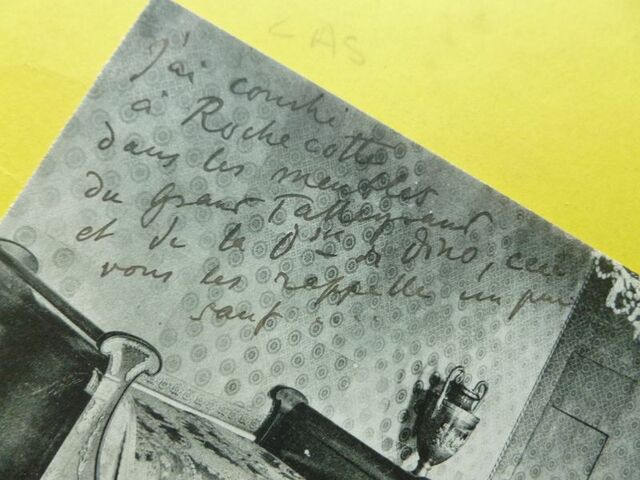 CAS
J'ai couché
à Rochecotte
dans les meubles
du grand Talleyrand
et de la Dsse de Dino, cela
vous les rappelle un peu
sauf ....